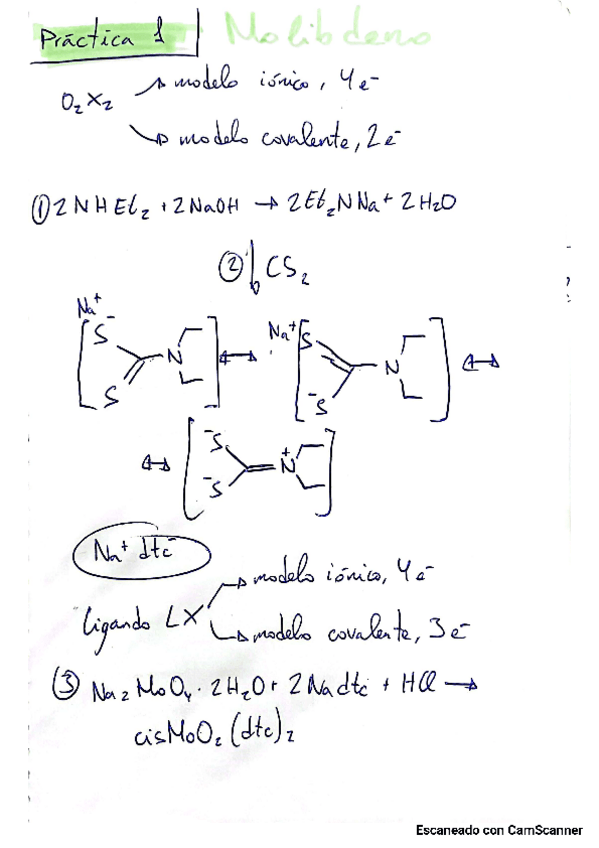 Práctica 1 Molibdeno
O₂X₂ → modelo iónico, 4e⁻
→ modelo covalente, 2e⁻
① 2NHEt₂ + 2NaOH → 2Et₂NNa + 2H₂O
② ↓ CS₂
Na⁺ [⁻S S N] ↔ Na⁺ [S ⁻S N] ↔
↔ [⁻S ⁻S N⁺]
Na⁺ dtc⁻
ligando LX → modelo iónico, 4e⁻
→ modelo covalente, 3e⁻
③ Na₂MoO₄·2H₂O + 2Nadtc + HCl →
cisMoO₂(dtc)₂
Escaneado con CamScanner